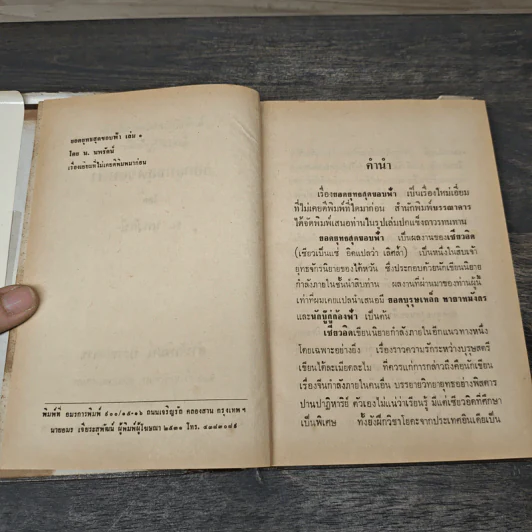 ยอดยุทธสุดขอบฟ้า เล่ม ๑
โดย น. นพรัตน์
เรื่องเยี่ยมที่ไม่เคยตีพิมพ์มาก่อน
พิมพ์ที่ อมรการพิมพ์ ๕๐๐/๑๕-๑๖ ถนนเจริญรัถ คลองสาน กรุงเทพฯ
นายอมร เจียระสุพัฒน์ ผู้พิมพ์ผู้โฆษณา ๒๕๓๑ โทร.
คำนำ
เรื่องยอดยุทธสุดขอบฟ้า เป็นเรื่องใหม่เอี่ยม
ที่ไม่เคยตีพิมพ์ที่ใดมาก่อน สำนักพิมพ์บรรณาคาร
ได้จัดพิมพ์เสนอท่านในรูปเล่มปกแข็งถาวรทนทาน
ยอดยุทธสุดขอบฟ้า เป็นผลงานของเซียวอิด
(เซียวเป็นแซ่ อิดแปลว่า เลิศล้ำ) เป็นหนึ่งในสิบเจ้า
ยุทธจักรนิยายของไต้หวัน ซึ่งประกอบด้วยนักเขียนนิยาย
กำลังภายในชั้นนำสิบท่าน ผลงานที่ผ่านมาของท่านผู้นี้
เท่าที่ผมเคยแปลนำเสนอมี ยอดบุรุษเหล็ก พายาหมังกร
และนักบู๊กู้กล้องฟ้า เป็นต้น
เซียวอิดเขียนนิยายกำลังภายในอีกแนวทางหนึ่ง
โดยเฉพาะอย่างยิ่ง เรื่องราวความรักระหว่างบุรุษสตรี
เขียนได้ละเมียดละไม ที่ควรแก่การกล่าวถึงคือนักเขียน
เรื่องจีนกำลังภายในคนอื่น บรรยายวิทยายุทธอย่างพิสดาร
ปานปาฏิหาริย์ ตัวเองไม่แน่ว่าเรียนรู้ มีแต่เซียวอิดที่ศึกษา
เป็นพิเศษ ทั้งยังฝึกวิชาโยคะจากประเทศอินเดียเป็น